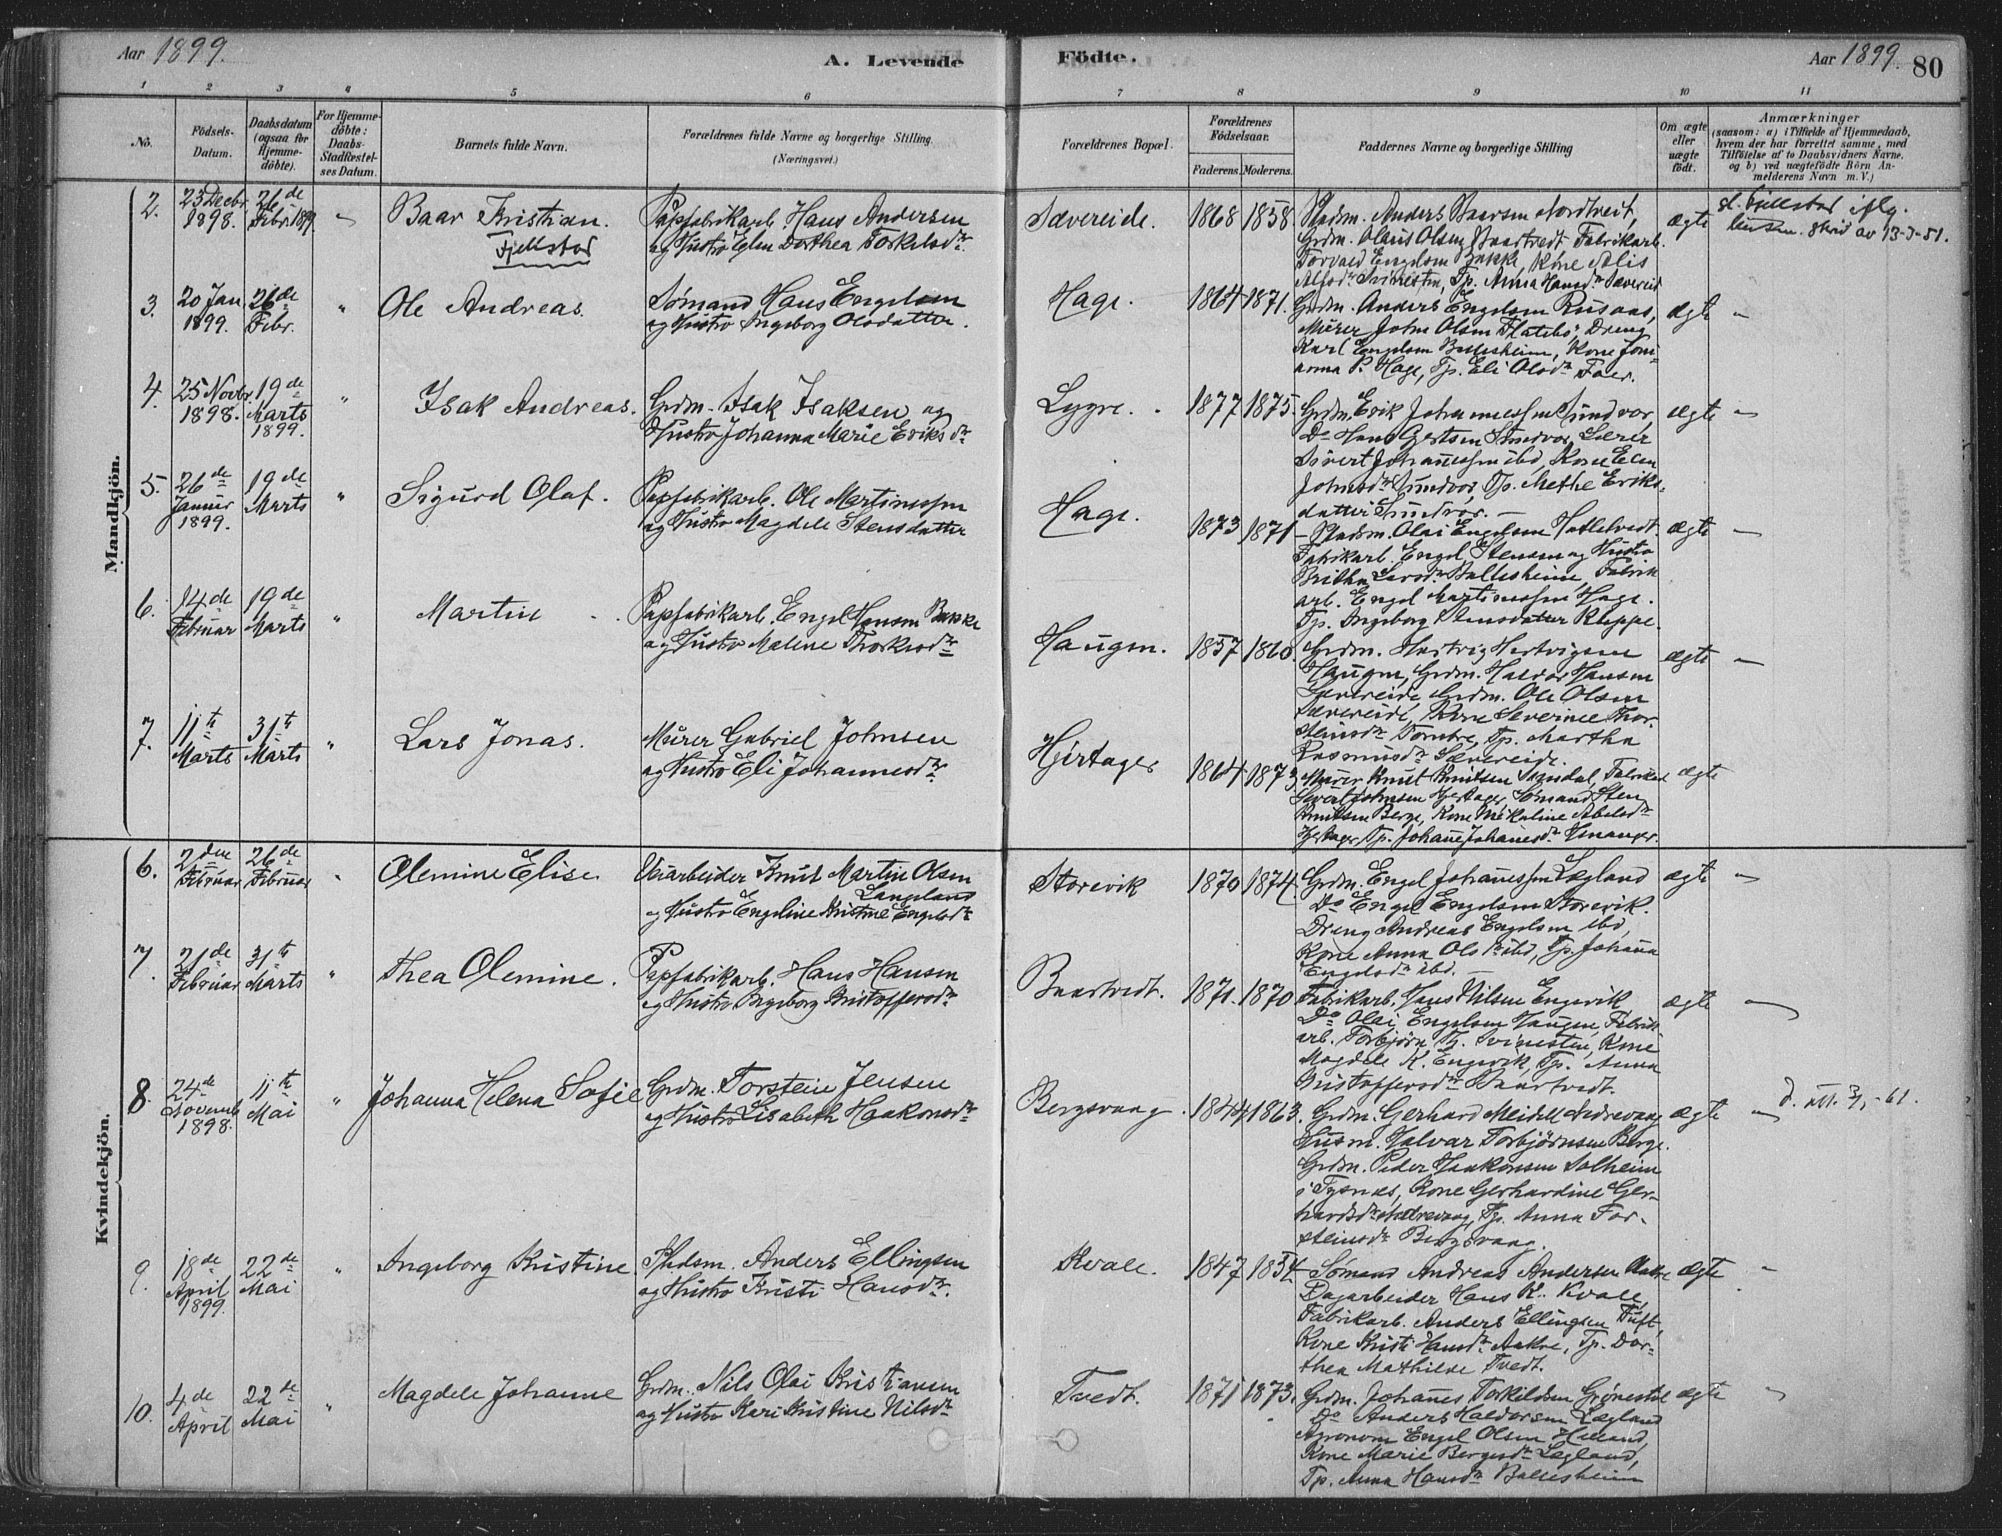 Aar 1899.
A. Levende Födte.
Aar 1899. 80
1 2 3 4 5 6 7 8 9 10 11
No.
Födsels-Datum.
Daabsdatum (ogsaa for Hjemme-döbte).
For Hjemme-döbte: Daabs-Stadfæstel-ses Datum.
Barnets fulde Navn.
Forældrenes fulde Navne og borgerlige Stilling. (Næringsvei.)
Forældrenes Bopæl.
Forældrenes Födselsaar.
Faderens. Moderens.
Faddernes Navne og borgerlige Stilling
Om ægte eller uægte födt.
Anmærkninger
(saasom: a) i Tilfælde af Hjemmedaab,
hvem der har forrettet samme, med
Tilföielse af to Daabsvidners Navne.
og b) ved uægtefödte Börn An-
melderens Navn m. V.)
Mandkjön.
2. 23 Decbr. 1898. 26de Febr. 1899 Baar Kristian. Fjellstad
Papfabrikarb. Hans Andersen
og Hustru Elen Dorthea Torkelsdr
Sævereide. 1868 1858.
Pladsm. Anders Baarsen Nordtveit,
Grdm. Olaus Olsen Baartvedt, Fabrikarb.
Torvald Engelsen Bakke, Kone Alis
Alfsdr Svinesten, Tp. Anna Hansdr Sævereid
ægte
av 13-3-51.
3. 20 Jan. 1899. 26de Febr. " Ole Andreas.
Sømand Hans Engelsen
og Hustro Ingeborg Olsdatter.
Hage. 1864 1871.
Grdm. Anders Engelsen Rusaas,
Murer John Olsen Flatebø, Dreng
Karl Engelsen Baltesheim, Kone Joni-
anna P. Hage, Tp. Eli Olsdr Foer.
ægte "
4. 25 Novbr. 1898. 19de Marts 1899. " Isak Andreas.
Grdm. Isak Isaksen og
Hustro Johanna Marie Eriksdr
Lygre. 1877 1875.
Grdm. Erik Johannessen Sundvor,
Do Hans Gertsen Sundvor, Lærer
Sivert Johannessen ibd, Kone Elen
Johnsdr Sundvor, Tp. Methe Eriks-
datter Sundvor.
ægte "
5. 26de Januar 1899. 19de Marts " Sigurd Olaf.
Papfabrikarb. Ole Martinessen
og Hustro Magdele Stensdatter
Hage. 1873 1871
Pladsm. Olai Engelsen Hatletvedt.
Fabrikarb. Engel Stensen og Hustro
Britha Larsdr Baltesheim, Fabrik
arb. Engel Martinessen Hage.
Tp. Ingeborg Stensdatter Kleppe.
ægte "
6. 14de Februar 19de Marts " Martin
Papfabrikarb. Engel Hansen Bakke
og Hustro Malene Thorkesdr
Haugen. 1857 1860.
Grdm. Hertvig Hertvigsen
Haugen, Grdm. Halvor Hansen
Sævereide, Grdm. Ole Olsen
Sævereide, Kone Severine Thor-
steinsdr Tomtre, Tp. Martha
Rasmusdr Sævereide.
ægte "
7. 11te Marts 31te Marts " Lars Jonas.
Murer Gabriel Johnsen
og Hustro Eli Johannesdr
Hjertager 1864 1873.
Murer Knut Knutsen Samdal, Fabrikarb
Sivert Johnsen Hjertager, Sømand Sten
Knutsen Berge, Kone Mikaline Abelsdr
Hjertager, Tp. Johanne Johannesdr Omanger.
ægte
Kvindekjön.
6. 2den Februar 26de Februar " Olemine Elise
Veiarbeider Knut Martin Olsen
Langeland
og Hustro Engeline Kristine Engelsdr
Storevik 1870 1874.
Grdm. Engel Johannessen Lægland
Do Engel Engelsen Storevik.
Dreng Andreas Engelsen ibd,
Kone Anna Olsdr ibd, Tp. Johanna
Engelsdr ibd.
ægte "
7. 21de Februar 31te Marts " Thea Olemine.
Papfabrikarb. Hans Hansen
og Hustro Ingeborg Kristoffersdr
Baartvedt. 1871. 1870
Fabrikarb. Hans Nilsen Engevik
Do Olai Engelsen Haugen, Fabrik
arb. Torbjørn Tj. Svinesten, Kone
Magdele K. Engevik, Tp. Anna
Kristoffersdr Baartvedt.
ægte
8. 24de Novemb. 1898. 11te Mai " Johanna Helena Sofie
Grdm. Torstein Jensen
og Hustro Lisabeth Haakonsdr
Bergsvaag. 1844 1863.
Grdm. Gerhard Meidell Nedrevaag
Husm. Halvar Torbjørnsen Berge.
Grdm. Peder Haakonsen Solheim
i Tysnes, Kone Gerhardine Ger-
hardsdr Nedrevaag, Tp. Anna Tor-
steinsdr Bergsvaag.
ægte "
9. 18de April 1899. 22de Mai " Ingeborg Kristine.
Pladsm. Anders Ellingsen
og Hustro Kristi Hansdr.
Kvale. 1847 1854
Sømand Andreas Andersen Aakre
Dagarbeider Hans K. Kvale,
Fabrikarb. Anders Ellingsen Tuft,
Kone Kristi Hansdr Aakre, Tp. Dor-
thea Mathilde Tvedt.
ægte "
10. 4de April 22de Mai " Magdele Johanne
Grdm. Nils Olai Kristiansen
og Hustro Kari Kristine Nilsdr
Tvedt. 1871 1873.
Grdm. Johannes Torkildsen Grønestøl
Do Anders Haldorsen Lægland
Agronom Engel Olsen Heland,
Kone Marie Bergesdr Lægland,
Tp. Anna Hansdr Baltesheim
ægte "